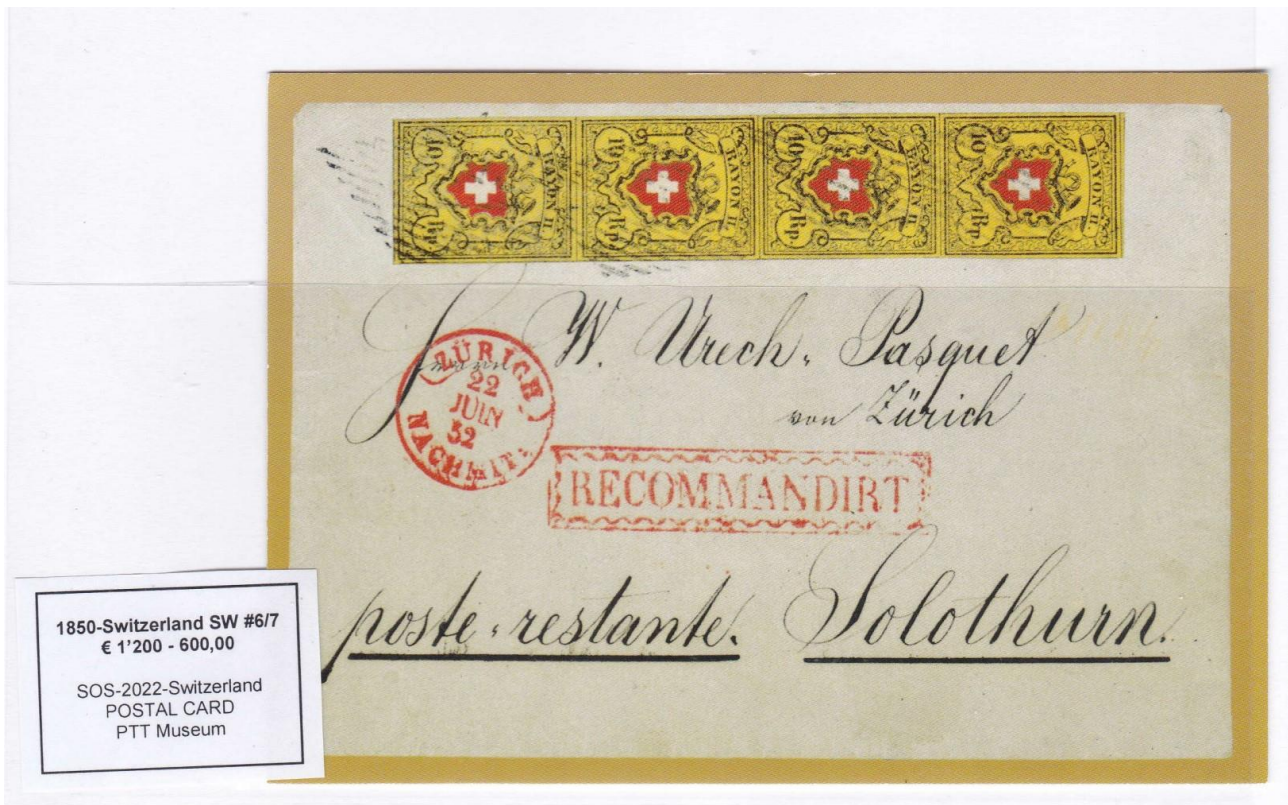 10 RAYON II. Rp.
10 RAYON II. Rp.
10 RAYON II. Rp.
10 RAYON II. Rp.
Herrn W. Urech-Pasquet
von Zürich
ZÜRICH
22
JUIN
52
NACHMIT:
RECOMMANDIRT
poste-restante. Solothurn.
1850-Switzerland SW #6/7
€ 1'200 - 600,00
SOS-2022-Switzerland
POSTAL CARD
PTT Museum